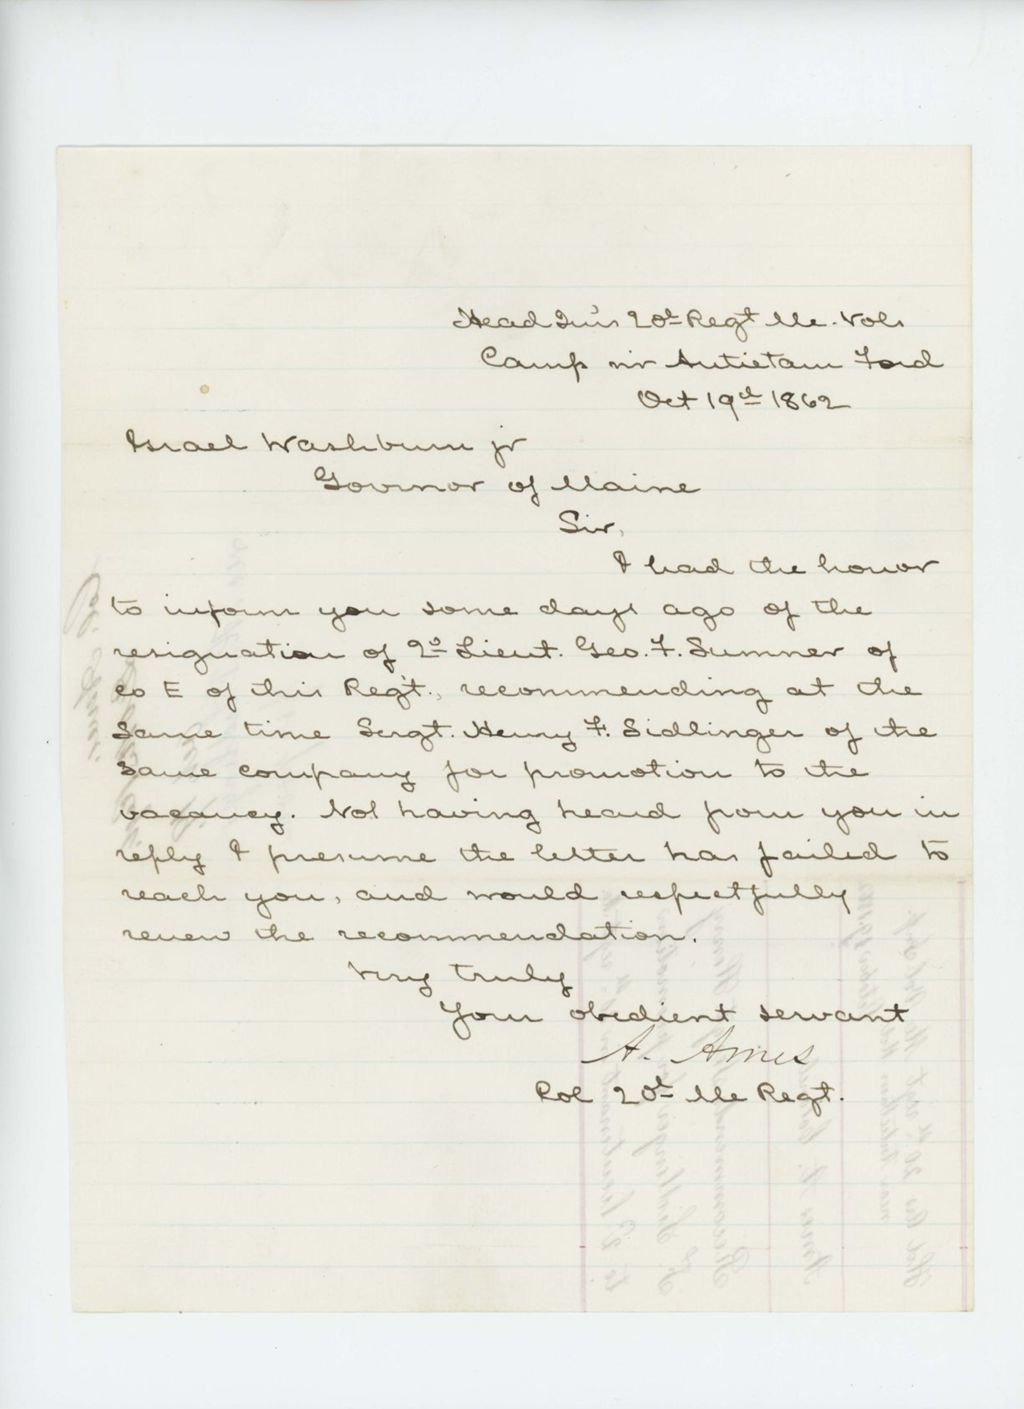 Head Qu's 20t Regt Me. Vols
Camp nr Antietam Ford
Oct 19th 1862
Israel Washburn jr
Governor of Maine
Sir,
I had the honor
to inform you some days ago of the
resignation of 2d Lieut. Geo. F. Sumner of
co E of this Reg't., recommending at the
same time Sergt. Henry F. Sidlinger of the
same company for promotion to the
vacancy. Not having heard from you in
reply I presume the letter has failed to
reach you, and would respectfully
renew the recommendation.
Very truly
Your obedient servant
A. Ames
Col 20t Me Regt.